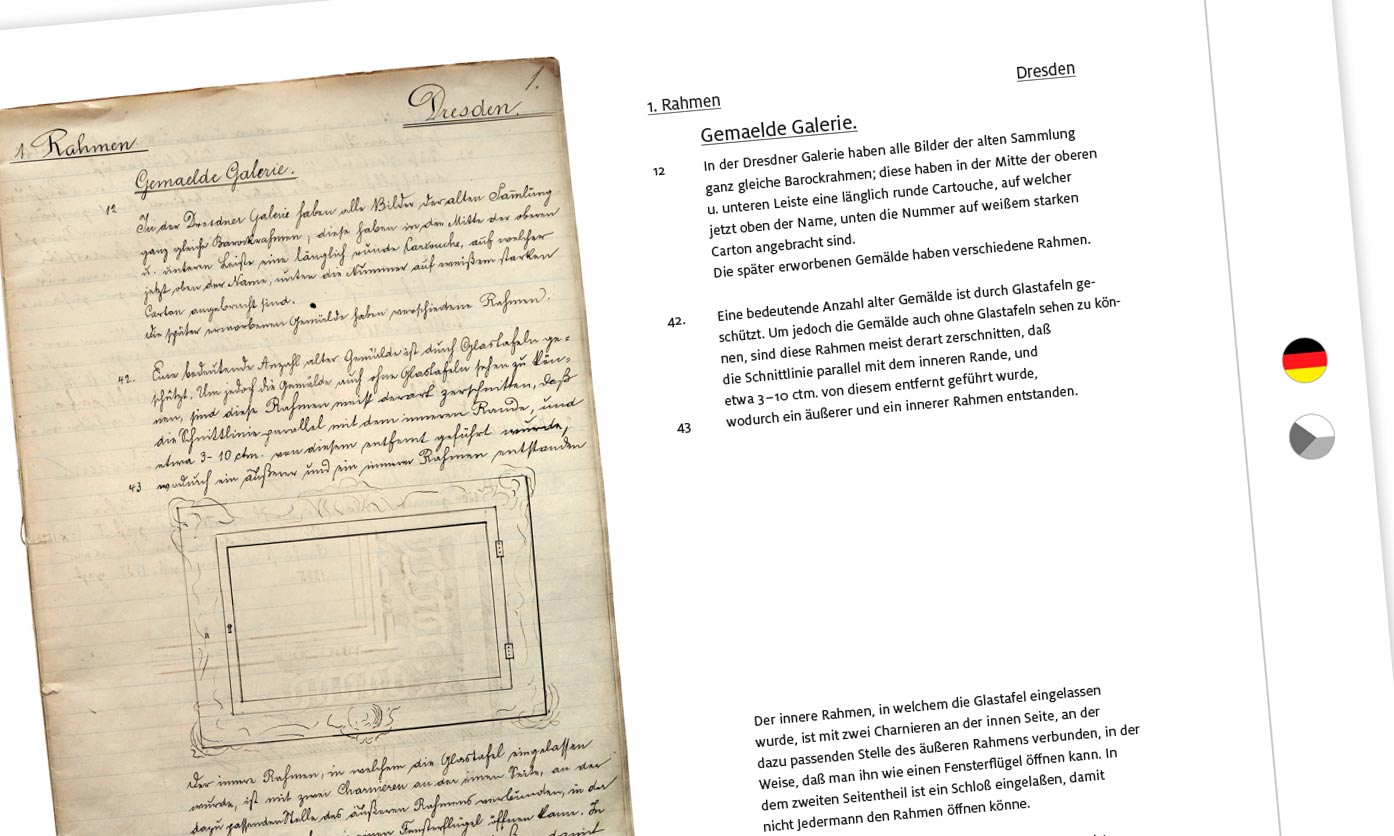 1.
Dresden.
1. Rahmen
Gemaelde Galerie.
12
In der Dresdner Galerie haben alle Bilder der alten Sam̄lung
ganz gleiche Barockrahmen; diese haben in der Mitte der oberen
u. unteren Leiste eine länglich runde Cartouche, auf welcher
jetzt oben der Name, unten die Nummer auf weißem starken
Carton angebracht sind.
die später erworbenen Gemälde haben verschiedene Rahmen.
42.
Eine bedeutende Anzahl alter Gemälde ist durch Glastafeln ge-
schützt. Um jedoch die Gemälde auch ohne Glastafeln sehen zu kön-
nen, sind diese Rahmen meist derart zerschnitten, daß
die Schnittlinie parallel mit dem inneren Rande, und
etwa 3-10 ctm. von diesem entfernt geführt wurde,
43 wodurch ein äußerer und ein innerer Rahmen entstanden
der innere Rahmen, in welchem die Glastafel eingelassen
wurde, ist mit zwei Charnieren an der innen Seite, an der
dazu passenden Stelle des äußeren Rahmens verbunden, in der
einen Fensterflügel öffnen kann. In
damit
Dresden
1. Rahmen
Gemaelde Galerie.
12
In der Dresdner Galerie haben alle Bilder der alten Sammlung
ganz gleiche Barockrahmen; diese haben in der Mitte der oberen
u. unteren Leiste eine länglich runde Cartouche, auf welcher
jetzt oben der Name, unten die Nummer auf weißem starken
Carton angebracht sind.
Die später erworbenen Gemälde haben verschiedene Rahmen.
42.
Eine bedeutende Anzahl alter Gemälde ist durch Glastafeln ge-
schützt. Um jedoch die Gemälde auch ohne Glastafeln sehen zu kön-
nen, sind diese Rahmen meist derart zerschnitten, daß
die Schnittlinie parallel mit dem inneren Rande, und
etwa 3–10 ctm. von diesem entfernt geführt wurde,
43 wodurch ein äußerer und ein innerer Rahmen entstanden.
Der innere Rahmen, in welchem die Glastafel eingelassen
wurde, ist mit zwei Charnieren an der innen Seite, an der
dazu passenden Stelle des äußeren Rahmens verbunden, in der
Weise, daß man ihn wie einen Fensterflügel öffnen kann. In
dem zweiten Seitentheil ist ein Schloß eingelaßen, damit
nicht Jedermann den Rahmen öffnen könne.